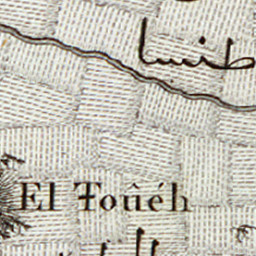 طنسا
El Ŧoûéh